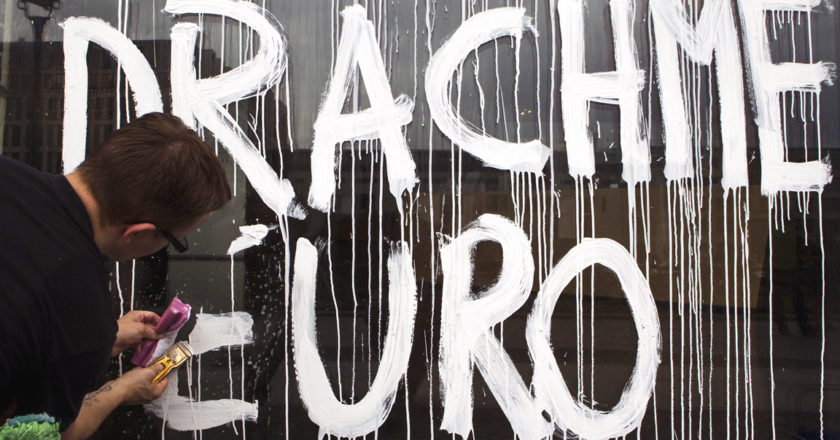 DRACHME
EURO